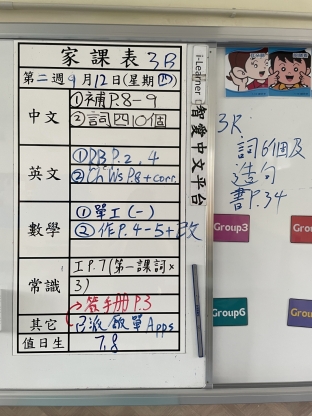 家課表 3B
第二週 9月12日(星期四)
中文
①補P.8-9
②詞四10個
英文
①PB P.2, 4
②Ch Ws P.8 + corr.
數學
①單工(一)
②作P.4-5+改
常識
工P.7(第一課詞×3)
→簽手册P.3
其它
已派飯單Apps
值日生
7,8
i-Learner
智愛中文平台
3R
詞6個及
造句
書P.34
Group3
Group6
Grou
Grou